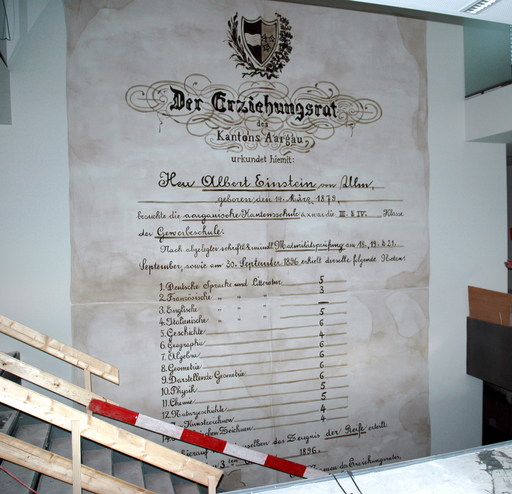 Der Erziehungsrat
des
Kantons Aargau
urkundet hiemit:
Herr Albert Einstein, von Ulm,
geboren den 14. März 1879,
besuchte die aargauische Kantonsschule & zwar die III. & IV. Klasse
der Gewerbeschule.
Nach abgelegter schriftl. & mündl. Maturitätsprüfung am 18., 19. & 21.
September, sowie am 30. September 1896 erhielt derselbe folgende Noten:
1. Deutsche Sprache und Litteratur 5
2. Französische " " " 3
3. Englische " " " —
4. Italienische " " " 5
5. Geschichte 6
6. Geographie 4
7. Algebra 6
8. Geometrie 6
9. Darstellende Geometrie 6
10. Physik 6
11. Chemie 5
12. Naturgeschichte 5
Kunstzeichnen 4
Zeichnen 4
hierauf desselben das Zeugnis der Reife erteilt.
3ten 1896.
Namen des Erziehungsrates